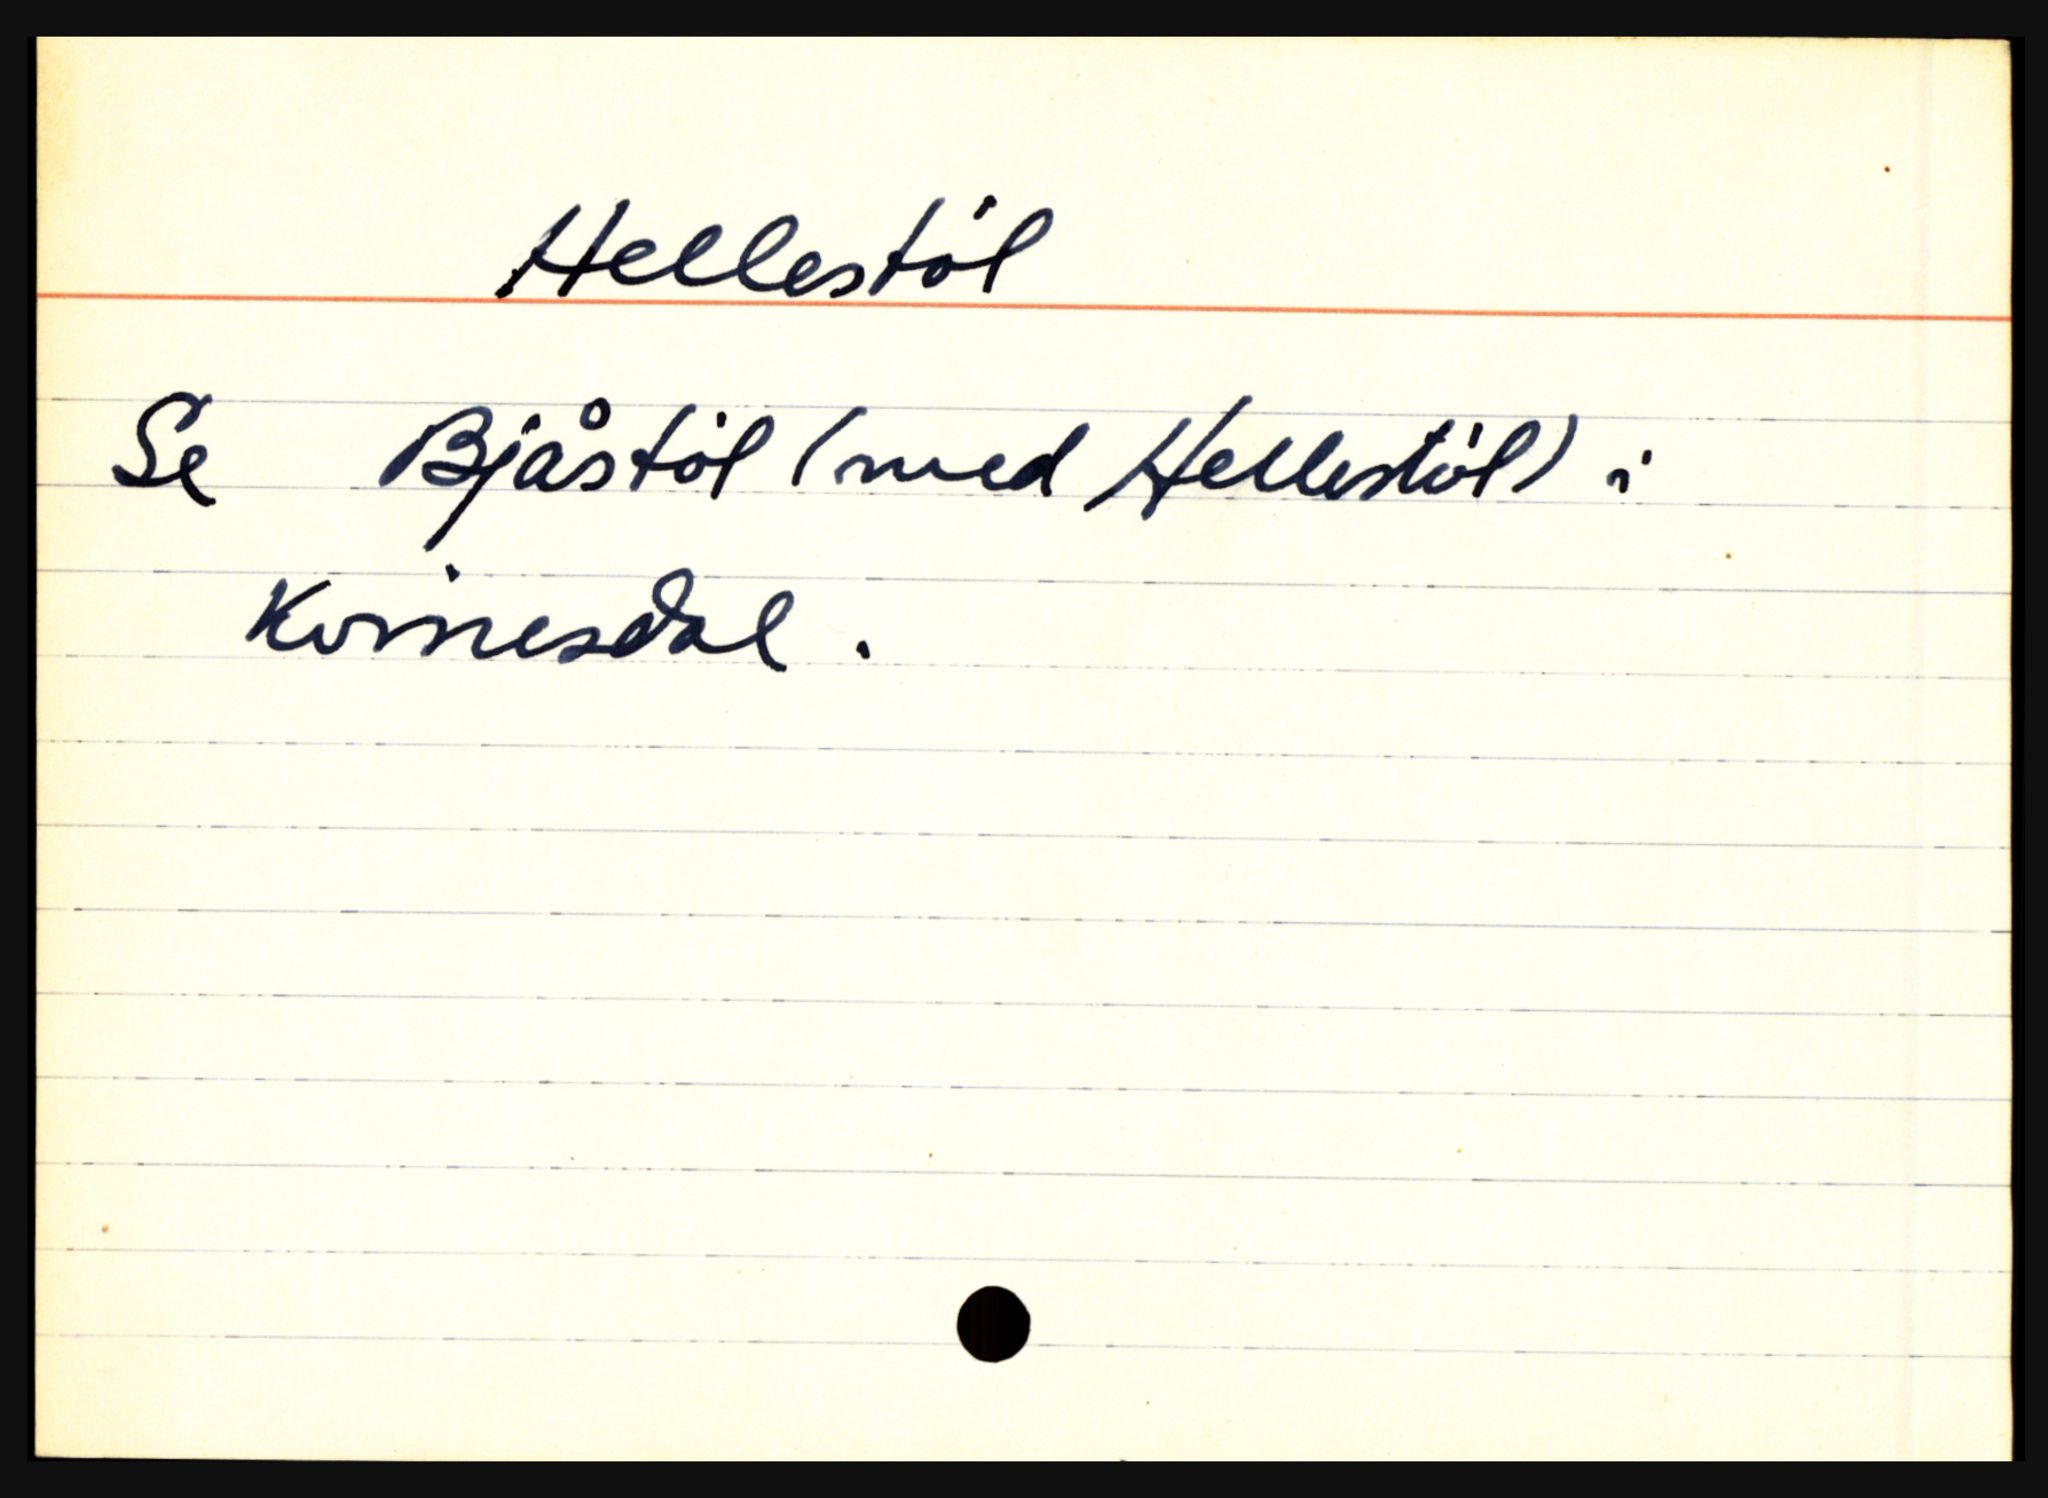 Hellestöl
Se Bjåstöl (med Hellestöl) i
Kvinesdal.